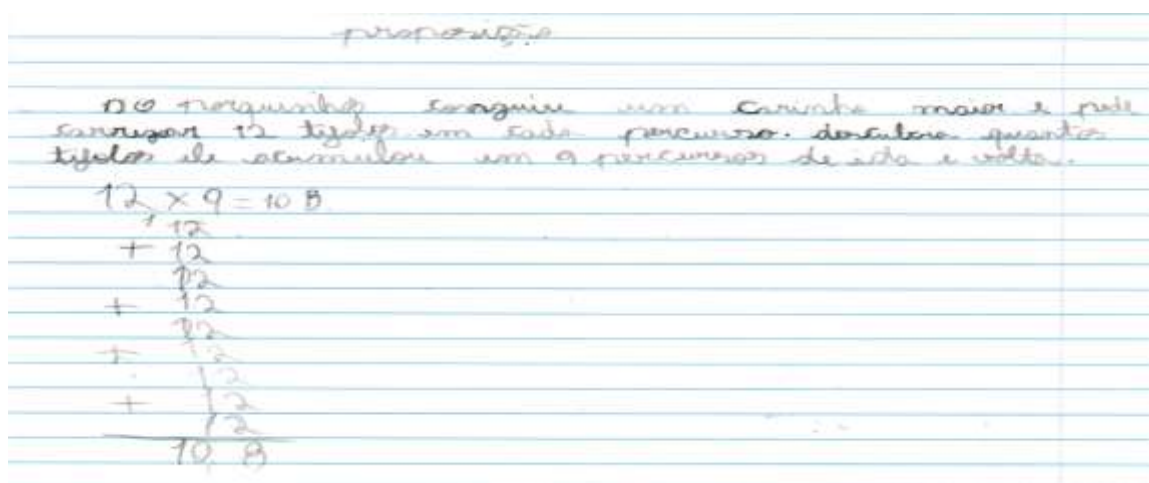 proposição
no porquinho conseguiu um carinho maior e pode
carregar 12 tijolos em cada percurso. descubra quantos
tijolos ele acumulou em 9 percursos de ida e volta.
12 × 9 = 10 8
1 12
+ 12
12
+ 12
12
+ 12
12
+ 12
12
10 8